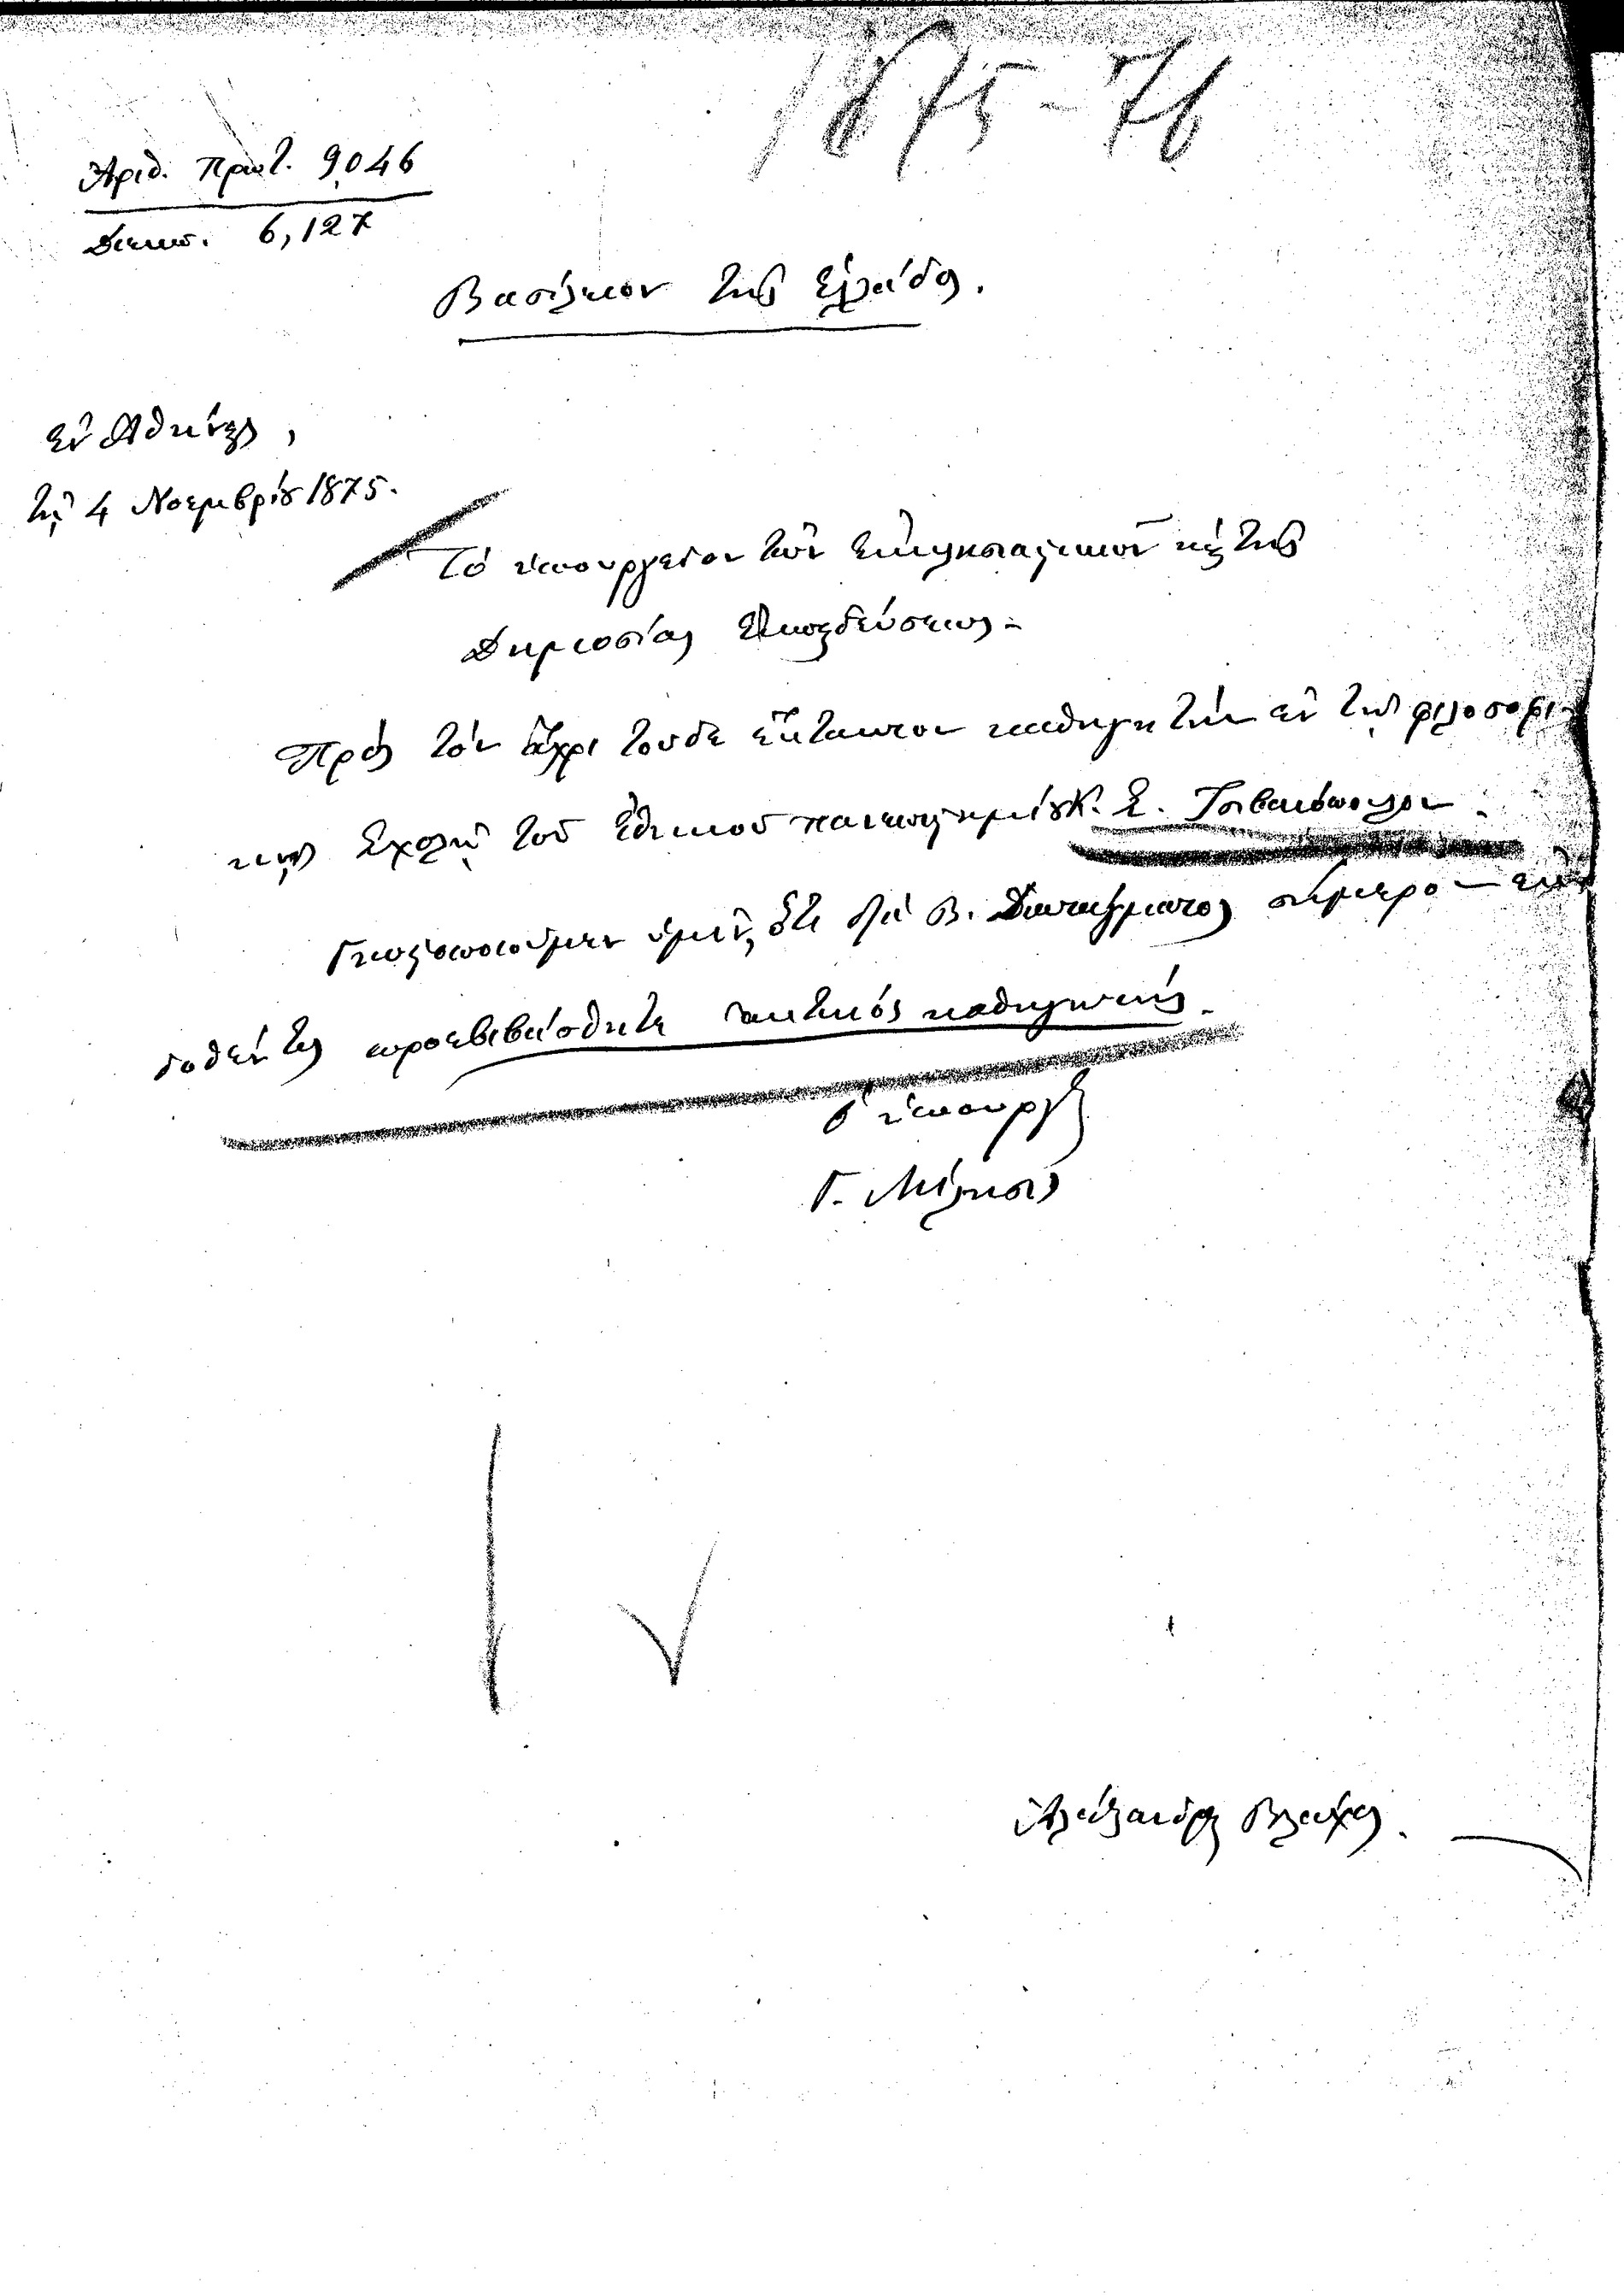 1875-76
Ἀριθ. Πρωτ. 9,046
Διεκπ. 6,127
Βασίλειον τῆς Ἑλλάδος.
Ἐν Ἀθήναις,
τῇ 4 Νοεμβρίου 1875.
Τὸ ὑπουργεῖον τῶν Ἐκκλησιαστικῶν καὶ τῆς
Δημοσίας Ἐκπαιδεύσεως.-
Πρὸς τὸν ἄχρι τοῦδε ἔκτακτον καθηγητὴν ἐν τῇ φιλοσοφι
κῇ Σχολῇ τοῦ Ἐθνικοῦ πανεπιστημίου Κ. Σ. Τσιβανόπουλον.
Γνωστοποιοῦμεν ὑμῖν, ὅτι διὰ Β. Διατάγματος σήμερον ἐκ
δοθέντος προεβιβάσθητε τακτικὸς καθηγητής.
ὁ ὑπουργὸς
Γ. Μίλησις
Ἀλέξανδρος Βλάχος.